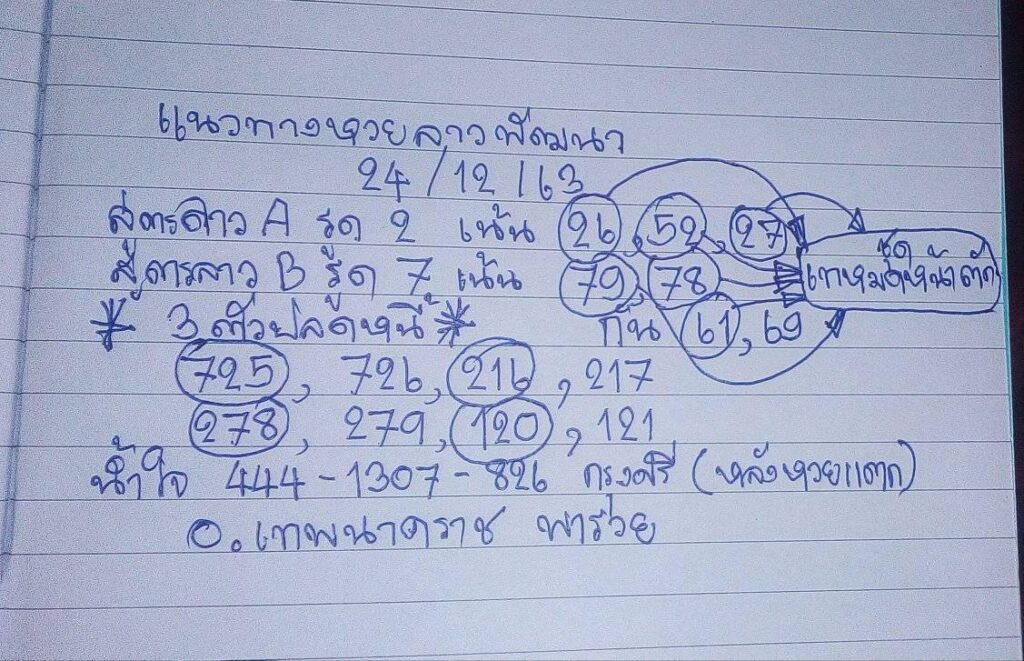 แนวทางหวยลาวพัฒนา
24/12/63
สูตรลาว A รูด 2 เน้น 26, 52, 27
สูตรลาว B รูด 7 เน้น 79, 78
ชุด
เทหมดหน้าตัก
* 3 ตัวปลดหนี้ * กัน 61, 69
725, 726, 216, 217
278, 279, 120, 121
น้ำใจ 444-1307-826 กรุงศรี (หลังหวยแตก)
อ.เทพนาคราช พารวย